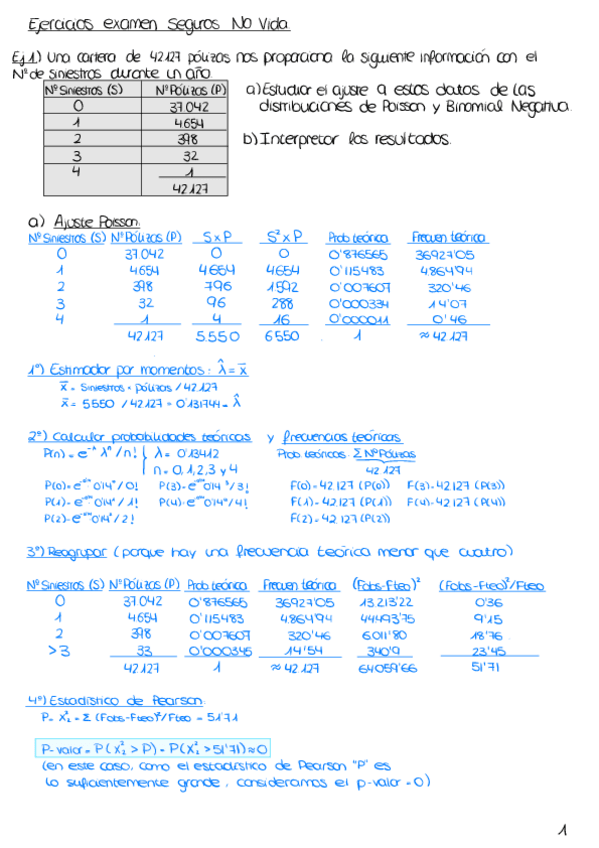 Ejercicios examen Seguros No Vida.
Ej.1) Una cartera de 42.127 pólizas nos proporciona la siguiente información con el
Nº de siniestros durante un año.
Nº Siniestros (S) Nº Pólizas (P)
0 37.042
1 4654
2 398
3 32
4 1
42.127
a) Estudiar el ajuste a estos datos de las
distribuciones de Poisson y Binomial Negativa.
b) Interpretar los resultados.
a) Ajuste Poisson:
Nº Siniestros (S) Nº Pólizas (P) S x P S² x P Prob. teórica Frecuen. teórica
0 37.042 0 0 0'876565 36927'05
1 4654 4654 4654 0'115483 4864'94
2 398 796 1592 0'007607 320'46
3 32 96 288 0'000334 14'07
4 1 4 16 0'000011 0'46
42.127 5.550 6550 1 ≈ 42.127
1º) Estimador por momentos: λ̂ = x̄
x̄ = Siniestros · pólizas / 42.127
x̄ = 5550 / 42.127 = 0'131744 = λ̂
2º) Calcular probabilidades teóricas y frecuencias teóricas
P(n) = e^-λ λ^n / n! { λ = 0'13412
n = 0, 1, 2, 3 y 4
Prob. teóricas: Σ Nº Pólizas
42.127
P(0) = 0'14⁰ / 0! P(3) = 0'14³ / 3! F(0) = 42.127 (P(0)) F(3) = 42.127 (P(3))
P(1) = 0'14 / 1! P(4) = 0'14⁴ / 4! F(1) = 42.127 (P(1)) F(4) = 42.127 (P(4))
P(2) = 0'14² / 2! F(2) = 42.127 (P(2))
3º) Reagrupar (porque hay una frecuencia teórica menor que cuatro)
Nº Siniestros (S) Nº Pólizas (P) Prob. teórica Frecuen. teórica (Fobs-Fteo)² (Fobs-Fteo)²/Fteo
0 37.042 0'876565 36927'05 13.213'22 0'36
1 4654 0'115483 4864'94 44493'75 9'15
2 398 0'007607 320'46 6.011'80 18'76
>3 33 0'000345 14'54 340'9 23'45
42.127 1 ≈ 42.127 64059'66 51'71
4º) Estadístico de Pearson:
P = X²₂ = Σ (Fobs-Fteo)²/Fteo = 51'71
P-valor = P(X²₂ > P) = P(X²₂ > 51'71) ≈ 0
(en este caso, como el estadístico de Pearson "P" es
lo suficientemente grande, consideramos el p-valor = 0)
1